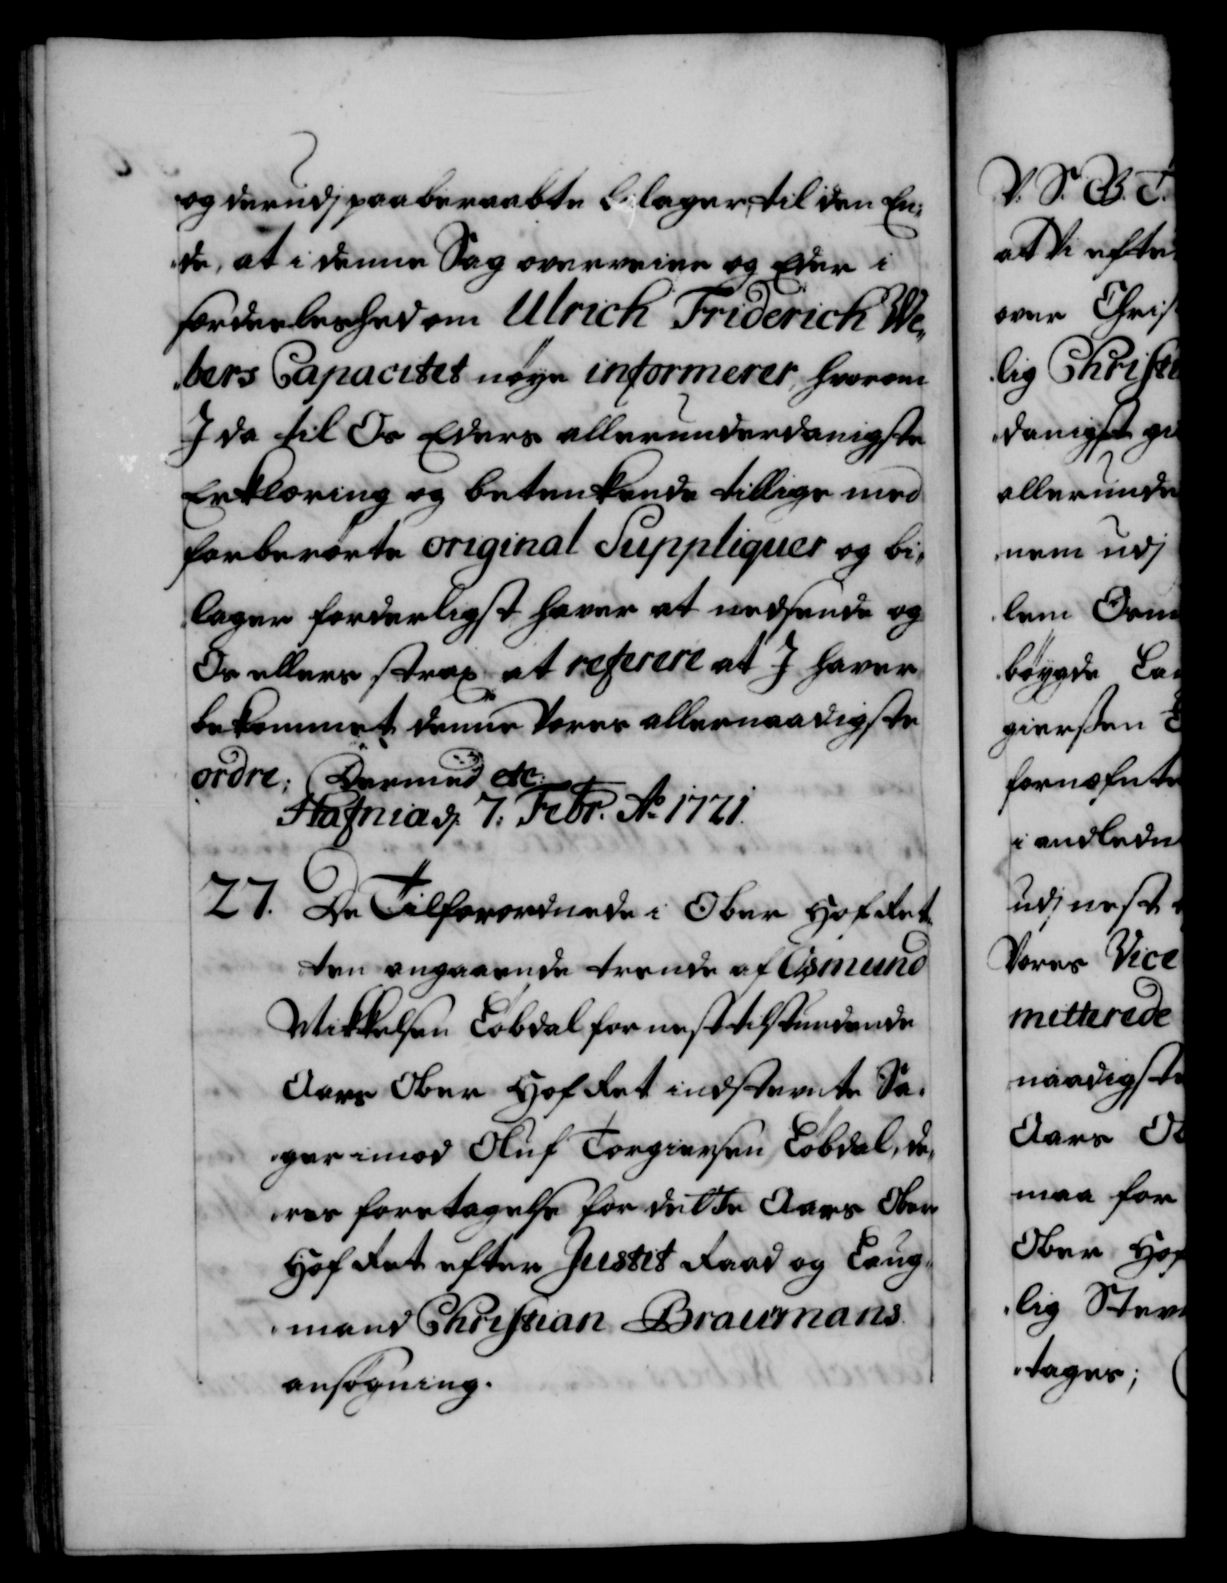 og derudj paaberaabte bilager, til den En¬
de, at i denne Sag overveie og Eder i
sørdeleshed om Ulrich Friderich We¬
bers Capacitet nøye informerer, hvorom
I da til Os Eders allerunderdanigste
Erklæring og betenkende tillige med
forberørte original Suppliquer og bi¬
lager forderligst haver at nedsende og
Os ellers strax at referere at I haver
bekommet denne Vores allernaadigste
ordre; Dermed etc.
Hafnia d. 7. Febr. Ao 1721.
27. De Tilforordnede i Ober Hof Ret
ten angaaende trende af Osmund
Mikkelsen Løbdal for nest tilstundende
Aars Ober Hof Ret indstevnte Sa¬
ger imod Oluf Torgiersen Løbdal, de¬
res foretagelse for dette Aars Ober
Hof Ret efter Justit Raad og Laug¬
mand Christian Braurmans
ansøgning.
V. S. G. T.
at Vi efter
over Chris
lig Christi
danigst gi
allerunde
nem udj
lem Osm
bøygde La
giersen
fornefnte
i andledn
udj nest
Vores Vice
mitterede
naadigste
Aars Ob
maa for
Ober Hof
lig Stev
tages;